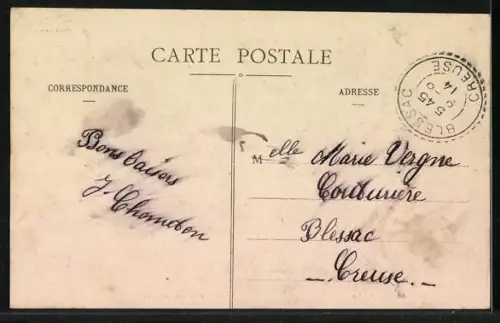 CARTE POSTALE
CORRESPONDANCE
ADRESSE
Bons baisers
J. Chometon
Melle Marie Vergne
Couturière
Blessac
— Creuse. —
BLESSAC
5 45
14
CREUSE